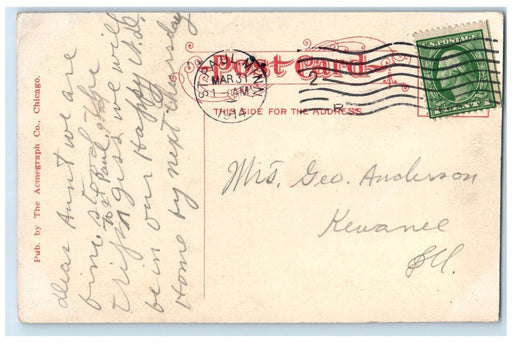 Post Card
ST. PAUL MINN.
MAR 31
1914
2
U.S. POSTAGE
THIS SIDE FOR THE ADDRESS
Mrs. Geo. Anderson
Kewanee
Ill.
Dear Aunt we are
fine stopped at the
St Paul
trip guess we will
be in our Happy N.D.
Home by next thursday
Pub. by The Acmegraph Co., Chicago.